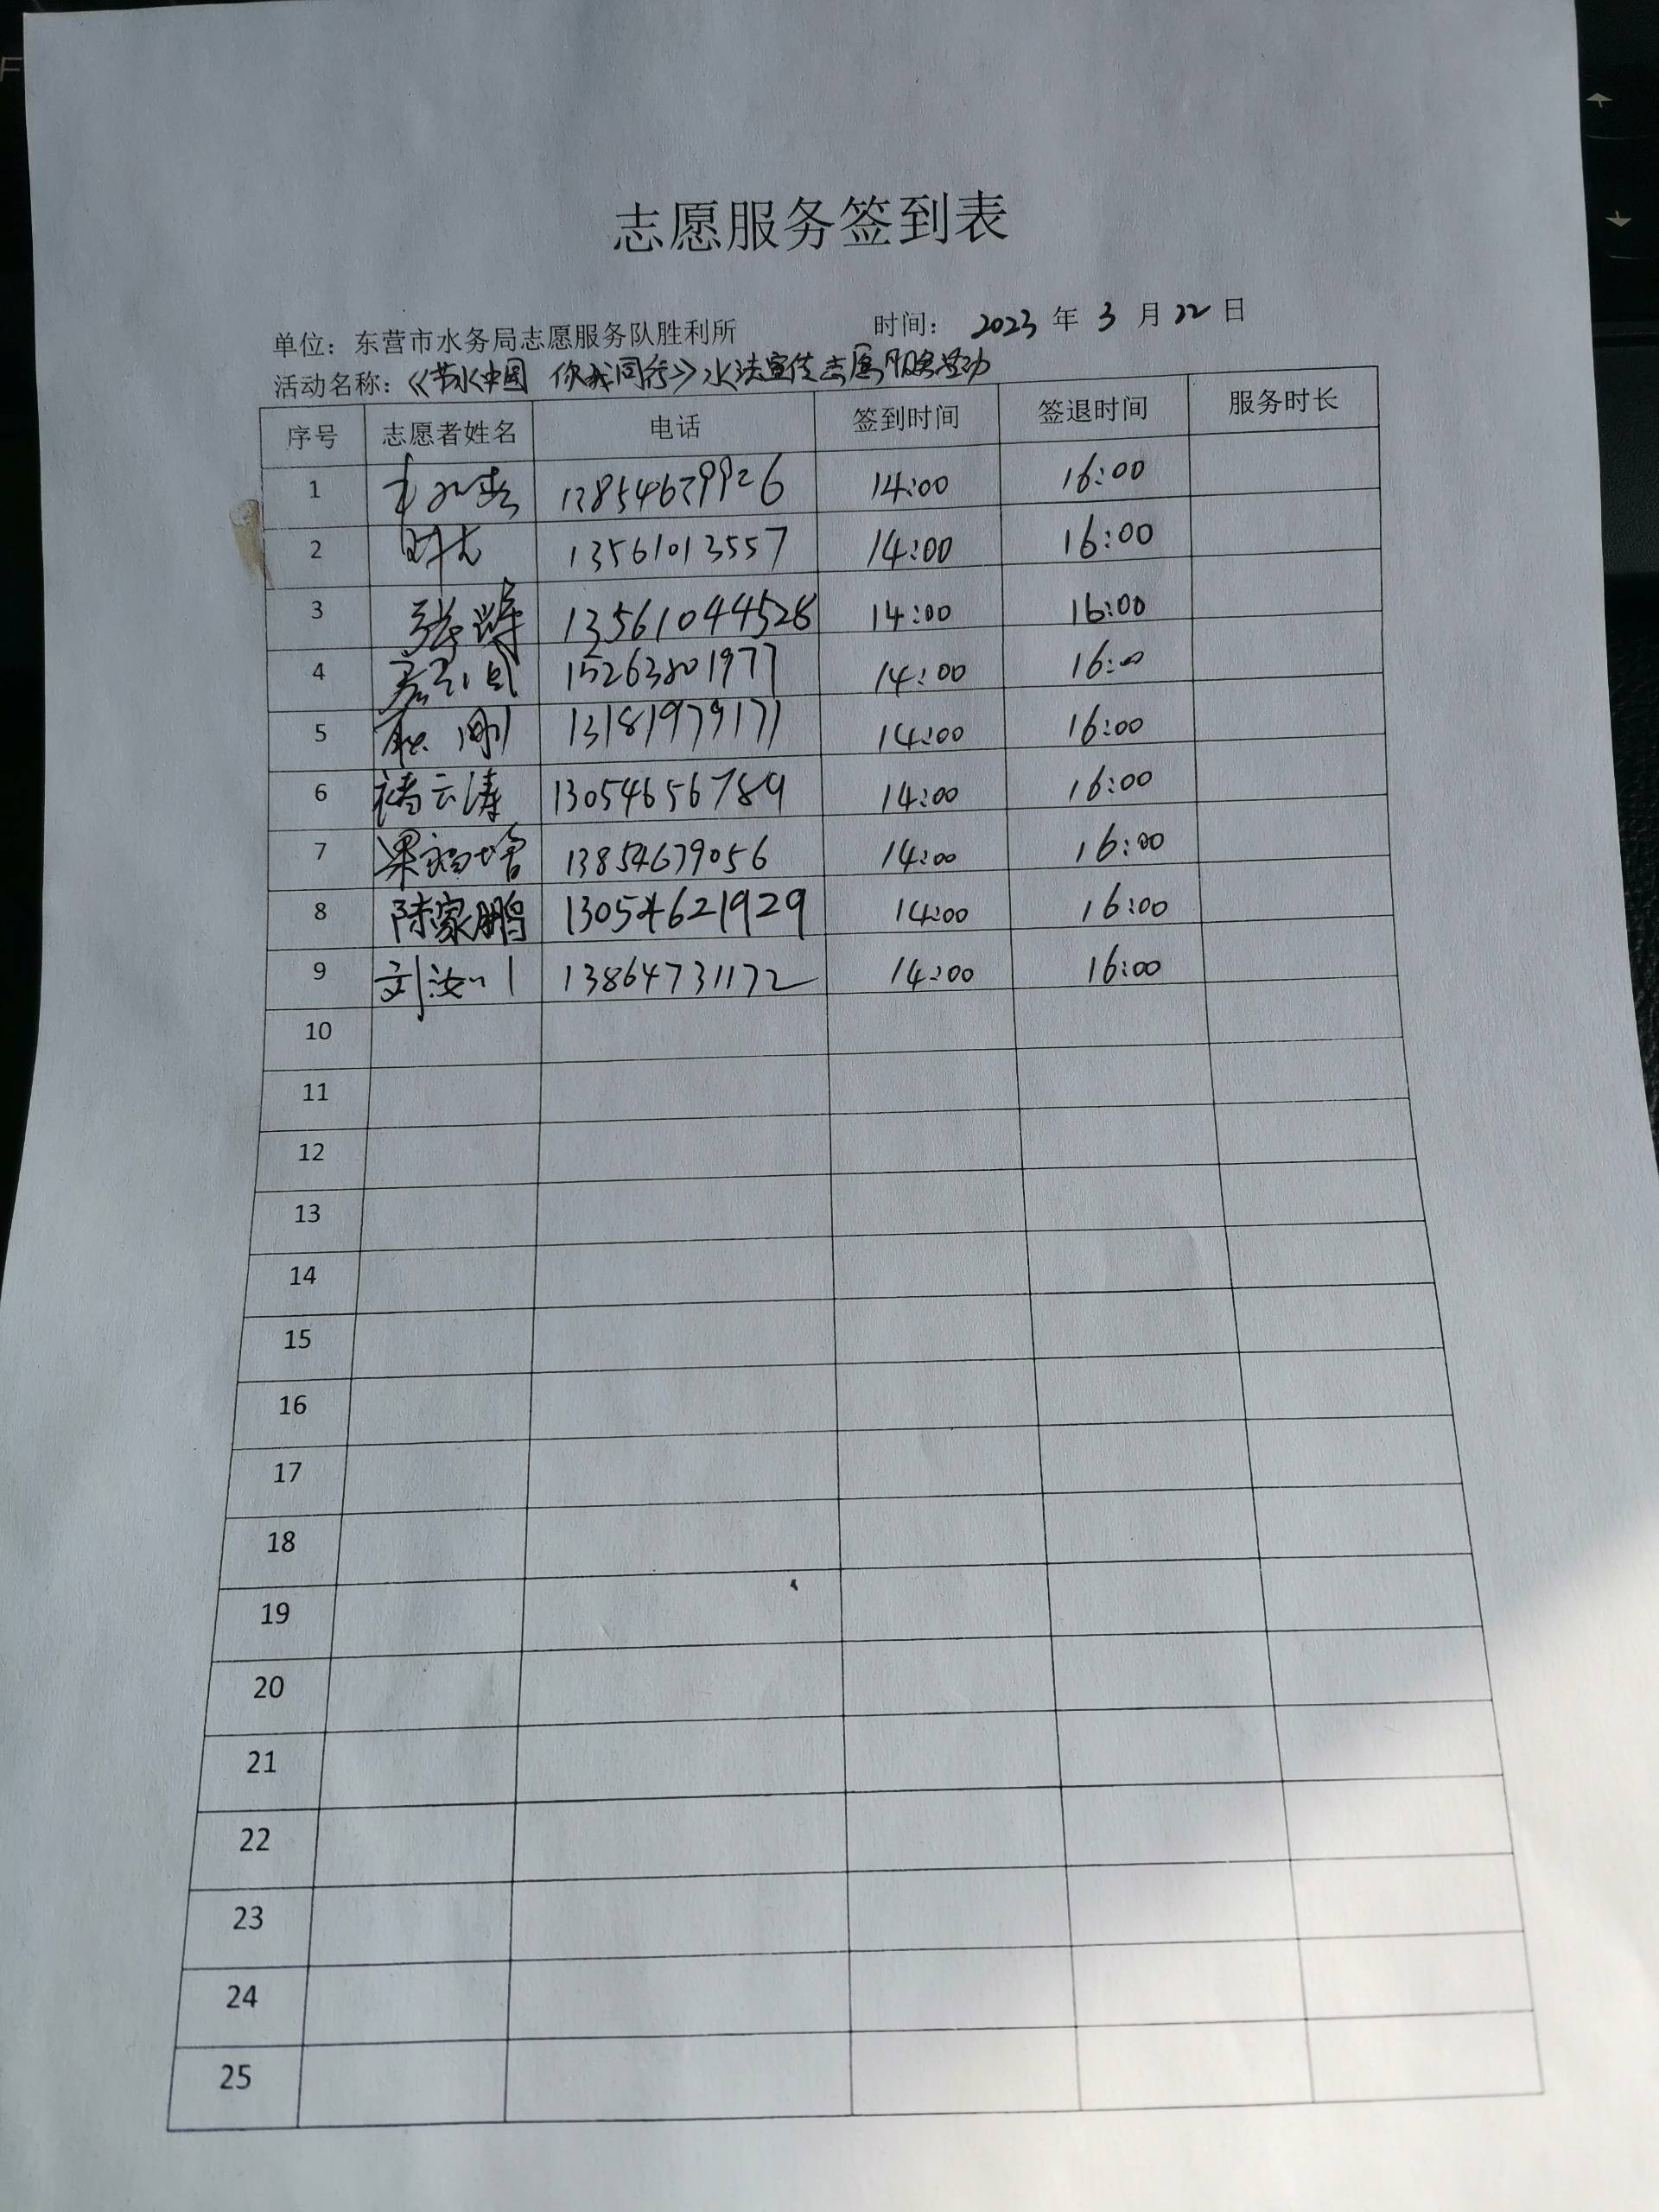 志愿服务签到表
单位：东营市水务局志愿服务队胜利所 时间： 2023 年 3 月 22 日
活动名称：《节水中国 你我同行》水法宣传志愿服务活动
序号 志愿者姓名 电话 签到时间 签退时间 服务时长
1 13854679926 14:00 16:00
2 13561013557 14:00 16:00
3 张涛 13561044528 14:00 16:00
4 15263801977 14:00 16:00
5 13181979171 14:00 16:00
6 褚云涛 13054656789 14:00 16:00
7 梁福增 13854679056 14:00 16:00
8 陈家鹏 13054621929 14:00 16:00
9 刘汝川 13864731172 14:00 16:00
10
11
12
13
14
15
16
17
18
19
20
21
22
23
24
25